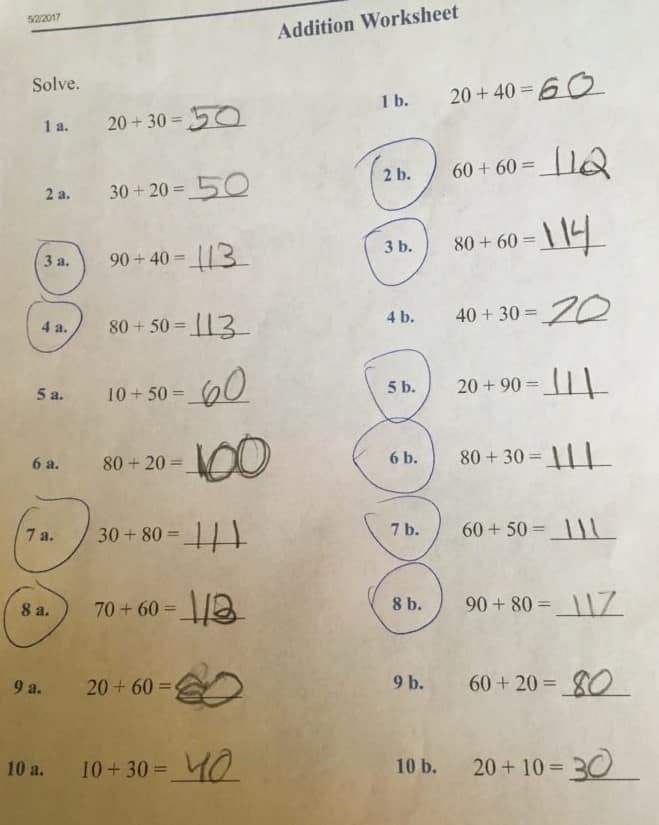 5/2/2017
Addition Worksheet
Solve.
1 a. 20 + 30 = 50
1 b. 20 + 40 = 60
2 a. 30 + 20 = 50
2 b. 60 + 60 = 112
3 a. 90 + 40 = 113
3 b. 80 + 60 = 114
4 a. 80 + 50 = 113
4 b. 40 + 30 = 70
5 a. 10 + 50 = 60
5 b. 20 + 90 = 111
6 a. 80 + 20 = 100
6 b. 80 + 30 = 111
7 a. 30 + 80 = 111
7 b. 60 + 50 = 111
8 a. 70 + 60 = 113
8 b. 90 + 80 = 117
9 a. 20 + 60 = 80
9 b. 60 + 20 = 80
10 a. 10 + 30 = 40
10 b. 20 + 10 = 30